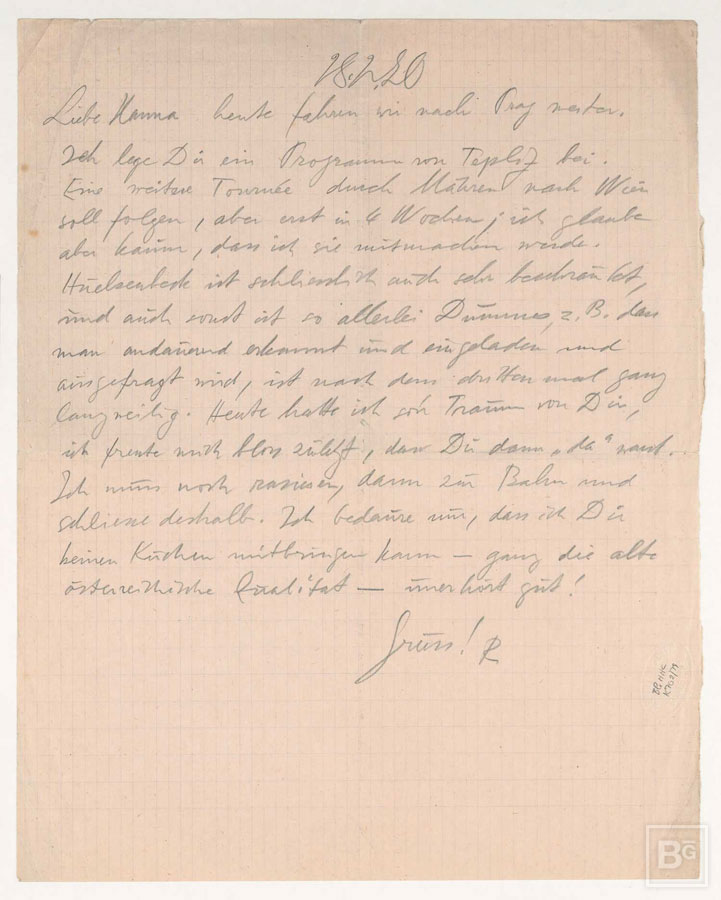 28.2.20
Liebe Hanna heute fahren wir nach Prag weiter.
Ich lege Dir ein Programm von Teplitz bei.
Eine weitere Tournée durch Mähren nach Wien
soll folgen, aber erst in 4 Wochen; ich glaube
aber kaum, dass ich sie mitmachen werde.
Huelsenbeck ist schliesslich auch sehr beschränkt,
und auch sonst ist so allerlei Dummes, z. B. dass
man andauernd erkannt und eingeladen und
ausgefragt wird, ist nach dem dritten mal ganz
langweilig. Heute hatte ich Traum von Dir,
ich freute mich bloss zuletzt, dass Du dann „da“ warst.
Ich muss noch rasieren, dann zur Bahn und
schliesse deshalb. Ich bedaure nur, dass ich Dir
keinen Kuchen mitbringen kann — ganz die alte
österreichische Qualität — unerhört gut!
Gruss! R
BG